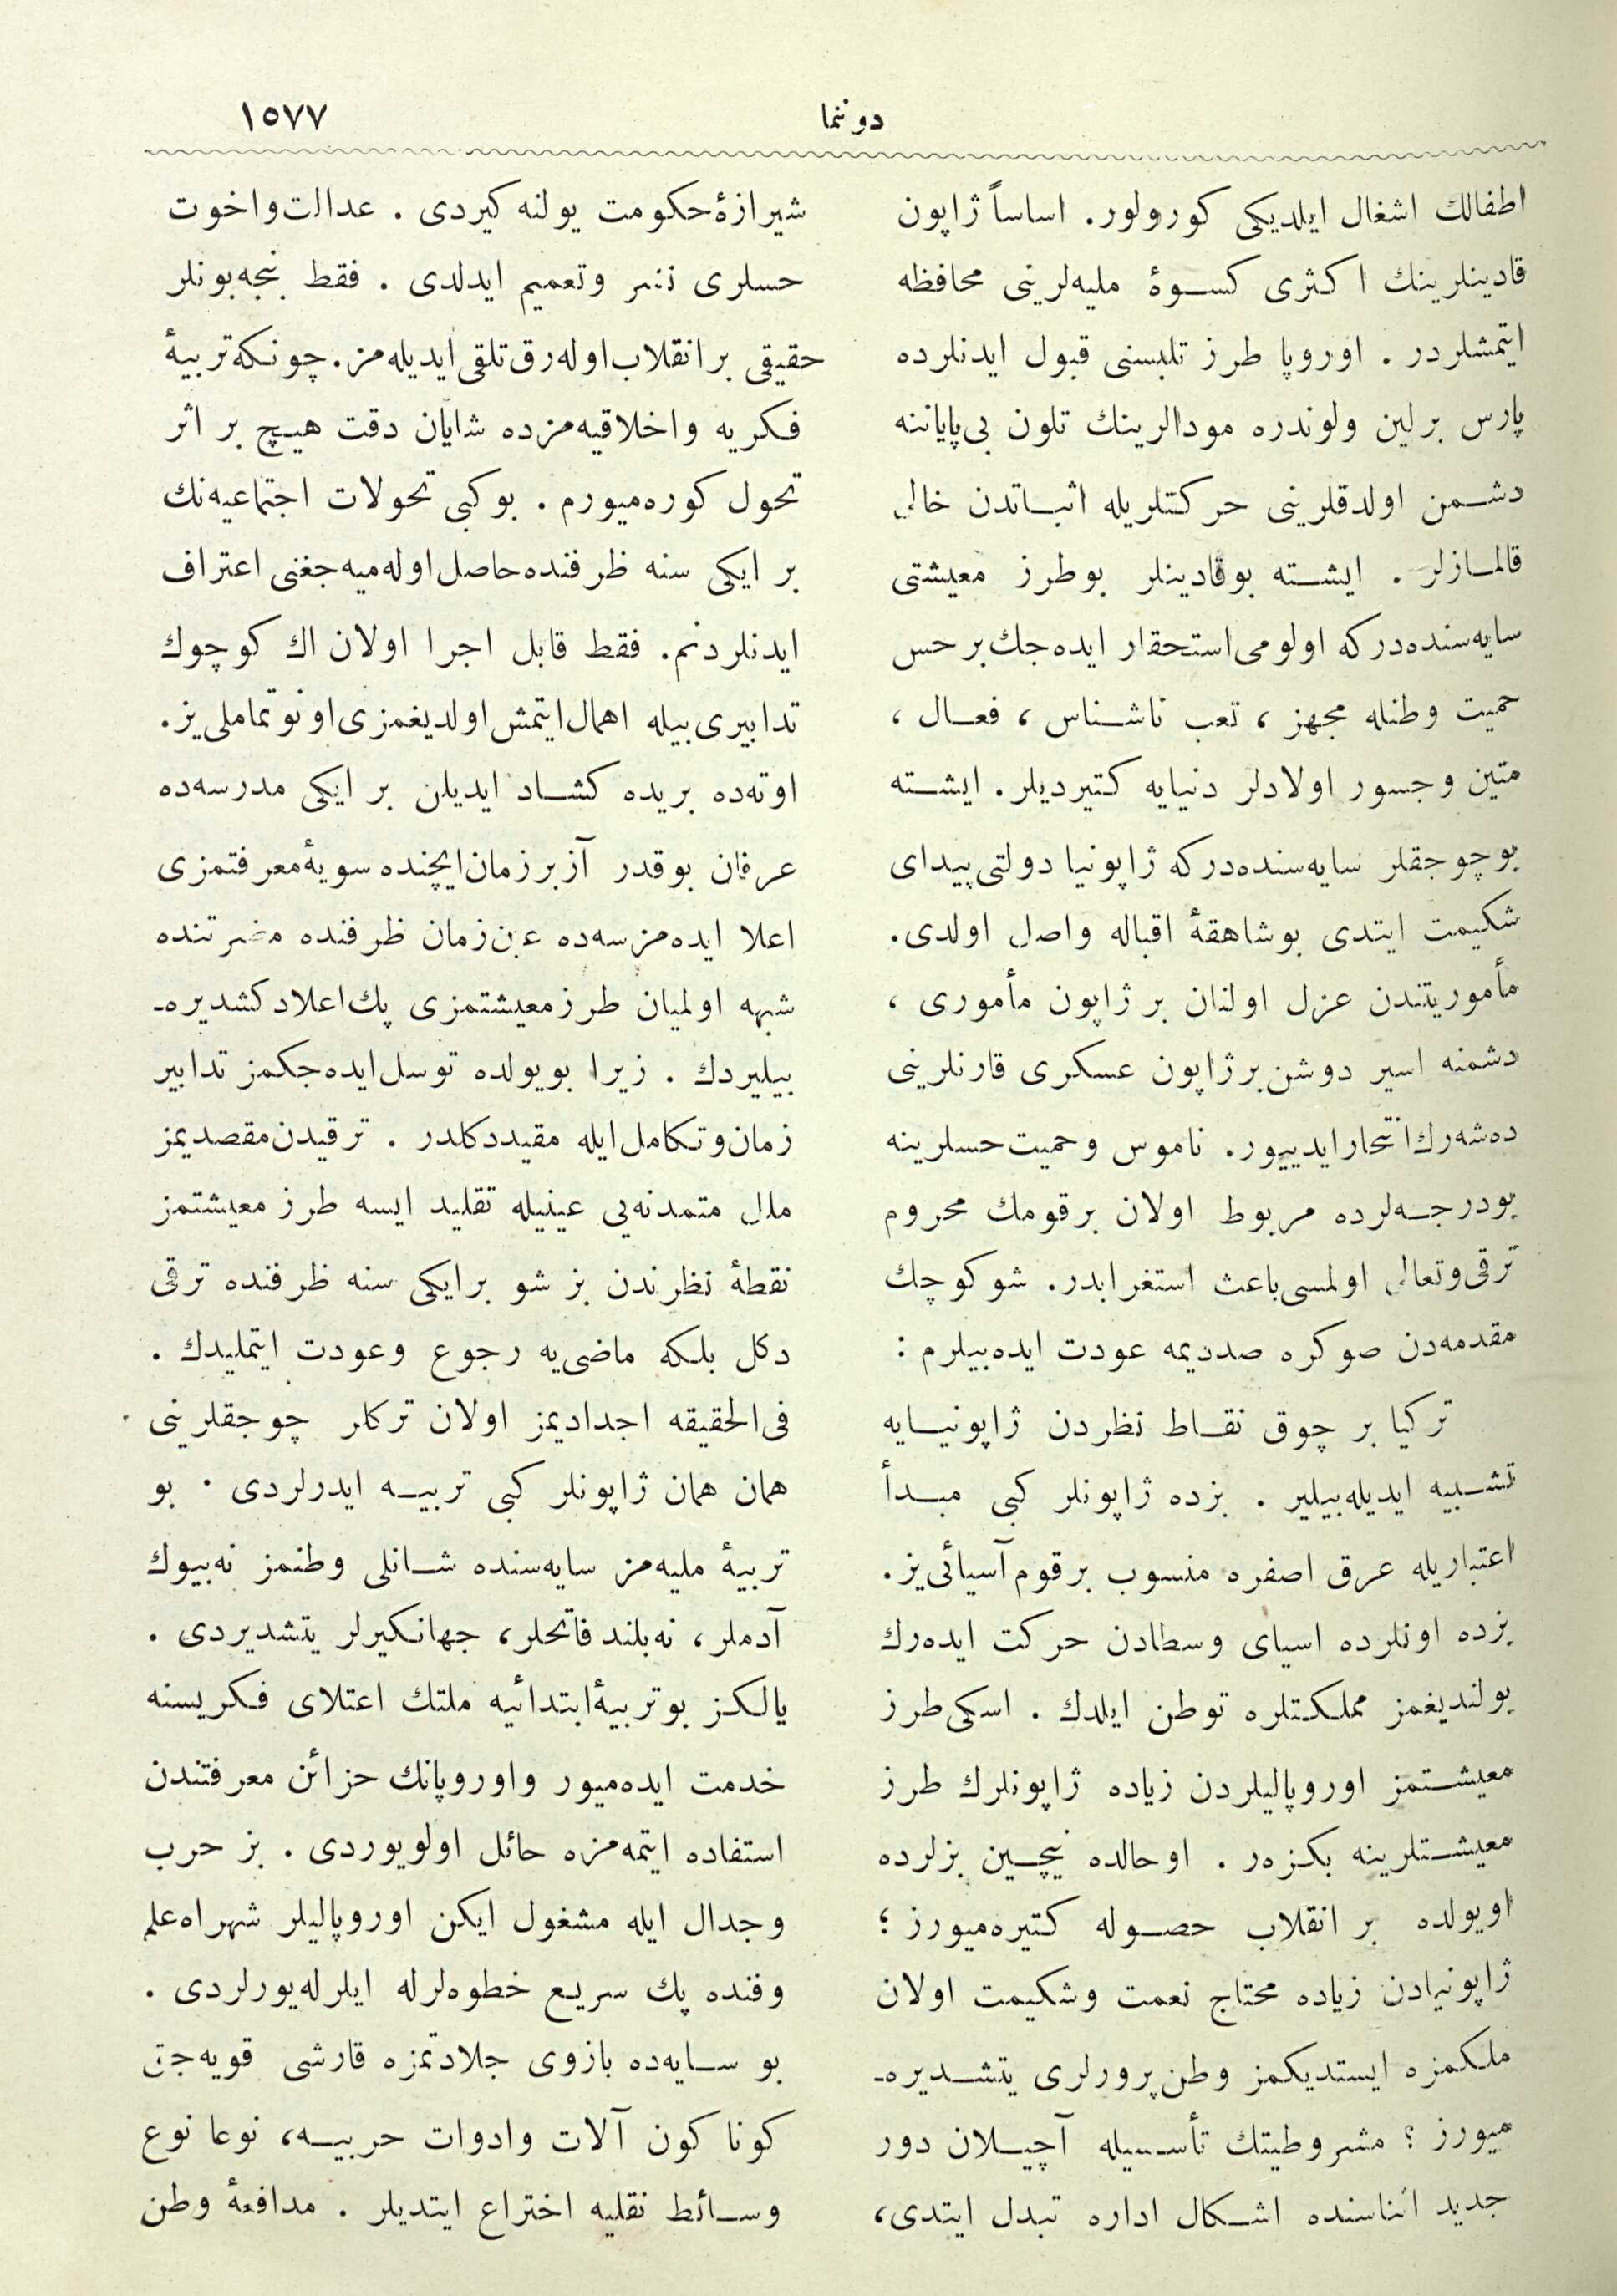 دوننما
١٥٧٧
اطفالك اشغال ايلديكى كورولور. اساساً ژاپون
قادينلرينك اكثرى كسوۀ مليه‌لرينى محافظه
ايتمشلردر . اوروپا طرز تلبسنى قبول ايدنلرده
پارس برلين ولوندره مودالرينك تلون بى‌پاياننه
دشمن اولدقلرينى حركتلريله اثباتدن خالى
قالمازلر . ايشته بوقادينلر بوطرز معيشتى
سايه‌سنده‌دركه اولومى استحقار ايده‌جك برحس
حميت وطنله مجهز ، تعب ناشناس ، فعال ،
متين وجسور اولادلر دنيايه كتيرديلر. ايشته
بوچوجقلر سايه‌سنده‌دركه ژاپونيا دولتى پيداى
شكيمت ايتدى بوشاهقۀ اقباله واصل اولدى.
مأموريتندن عزل اولنان بر ژاپون مأمورى ،
دشمنه اسير دوشن برژاپون عسكرى قارنلرينى
ده‌شه‌رك انتحار ايدييور. ناموس وحميت حسلرينه
بودرجه‌لرده مربوط اولان برقومك محروم
ترقى وتعالى اولمسى باعث استغرابدر. شو كوچك
مقدمه‌دن صوكره صدديمه عودت ايده‌بيلرم :
تركيا بر چوق نقاط نظردن ژاپونيايه
تشبيه ايديله‌بيلير . بزده ژاپونلر كبى مبدأ
اعتباريله عرق اصفره منسوب برقوم آسيائى‌يز.
بزده اونلرده اسياى وسطادن حركت ايده‌رك
بولنديغمز مملكتلره توطن ايلدك . اسكى طرز
معيشتمز اوروپاليلردن زياده ژاپونلرك طرز
معيشتلرينه بكزه‌ر . اوحالده نيچين بزلرده
اويولده بر انقلاب حصوله كتيره‌ميورز ؛
ژاپونيادن زياده محتاج نعمت وشكيمت اولان
ملكمزه ايستديكمز وطن‌پرورلرى يتشديره‌ـ
ميورز ؟ مشروطيتك تأسيسيله آچيلان دور
جديد اثناسنده اشكال اداره تبدل ايتدى،
شيرازۀ حكومت يولنه كيردى . عدالت واخوت
حسلرى نشر وتعميم ايدلدى . فقط بنجه‌بونلر
حقيقى برانقلاب اوله‌رق تلقى ايديله‌مز. چونكه تربيۀ
فكريه واخلاقيه‌مزده شايان دقت هيچ بر اثر
تحول كوره‌ميورم . بوكبى تحولات اجتماعيه‌نك
بر ايكى سنه ظرفنده حاصل اوله‌ميه‌جغنى اعتراف
ايدنلردنم. فقط قابل اجرا اولان اك كوچوك
تدابيرى بيله اهمال ايتمش اولديغمزى اونوتماملى‌يز.
اوته‌ده بريده كشاد ايديلن بر ايكى مدرسه‌ده
عرفان بوقدر آز برزمان ايچنده سويۀ معرفتمزى
اعلا ايده‌مزسه‌ده عين زمان ظرفنده مضرتنده
شبهه اولميان طرز معيشتمزى پك اعلا دكشديره‌ـ
بيليردك . زيرا بويولده توسل ايده‌جكمز تدابير
زمان وتكامل ايله مقيد دكلدر . ترقيدن مقصديمز
ملل متمدنه‌يى عينيله تقليد ايسه طرز معيشتمز
نقطۀ نظرندن بز شو برايكى سنه ظرفنده ترقى
دكل بلكه ماضى‌يه رجوع وعودت ايتمليدك .
فى‌الحقيقه اجداديمز اولان تركلر چوجقلرينى
همان همان ژاپونلر كبى تربيه ايدرلردى . بو
تربيۀ مليه‌مز سايه‌سنده شانلى وطنمز نه‌بيوك
آدملر، نه‌بلند فاتحلر، جهانكيرلر يتشديردى .
يالكز بوتربيۀ ابتدائيه ملتك اعتلاى فكريسنه
خدمت ايده‌ميور واوروپانك حزائن معرفتندن
استفاده ايتمه‌مزه حائل اولويوردى . بز حرب
وجدال ايله مشغول ايكن اوروپاليلر شهراه‌علم
وفنده پك سريع خطوه‌لرله ايلرله‌يورلردى .
بو سايه‌ده بازوى جلادتمزه قارشى قويه‌جق
كوناكون آلات وادوات حربيه، نوعا نوع
وسائط نقليه اختراع ايتديلر . مدافعۀ وطن